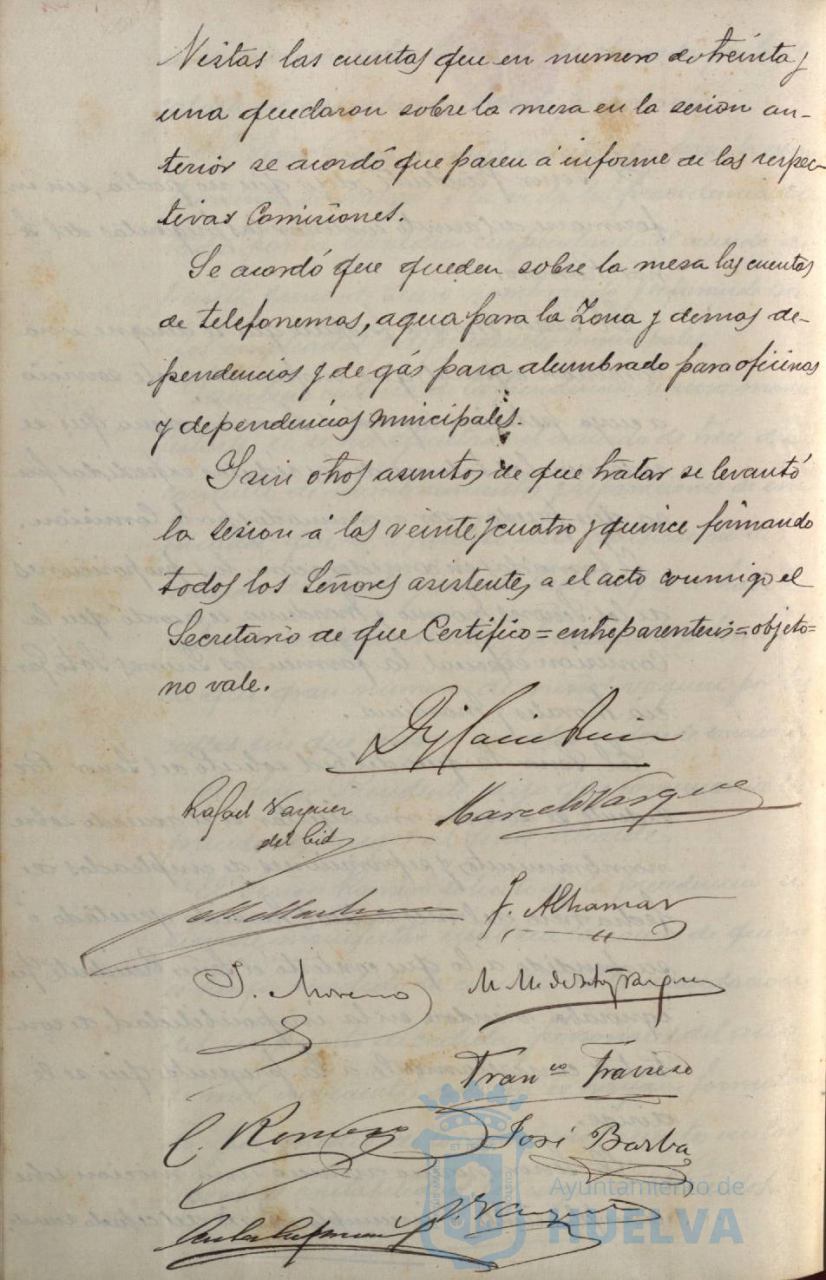 Vistas las cuentas que en numero de treinta y
una quedaron sobre la mesa en la sesion an-
terior se acordó que pasen á informe de las respec-
tivas Comisiones.
Se acordó que queden sobre la mesa las cuentas
de telefonemas, agua para la Zona y demas de-
pendencias y de gás para alumbrado para oficinas
y dependencias municipales.
Y sin otros asuntos de que tratar se levantó
la sesion á las veinte y cuatro y quince firmando
todos los Señores asistentes a el acto conmigo el
Secretario de que Certifico = entreparentesis = objeto =
no vale.
Rafael Vazquez
del Cid
Marcelo Vazquez
J. Alhamar
J. Moreno
M. M. de Soto Vazquez
Fran.co Travieso
C. Romero
José Barba
Ayuntamiento de
HUELVA